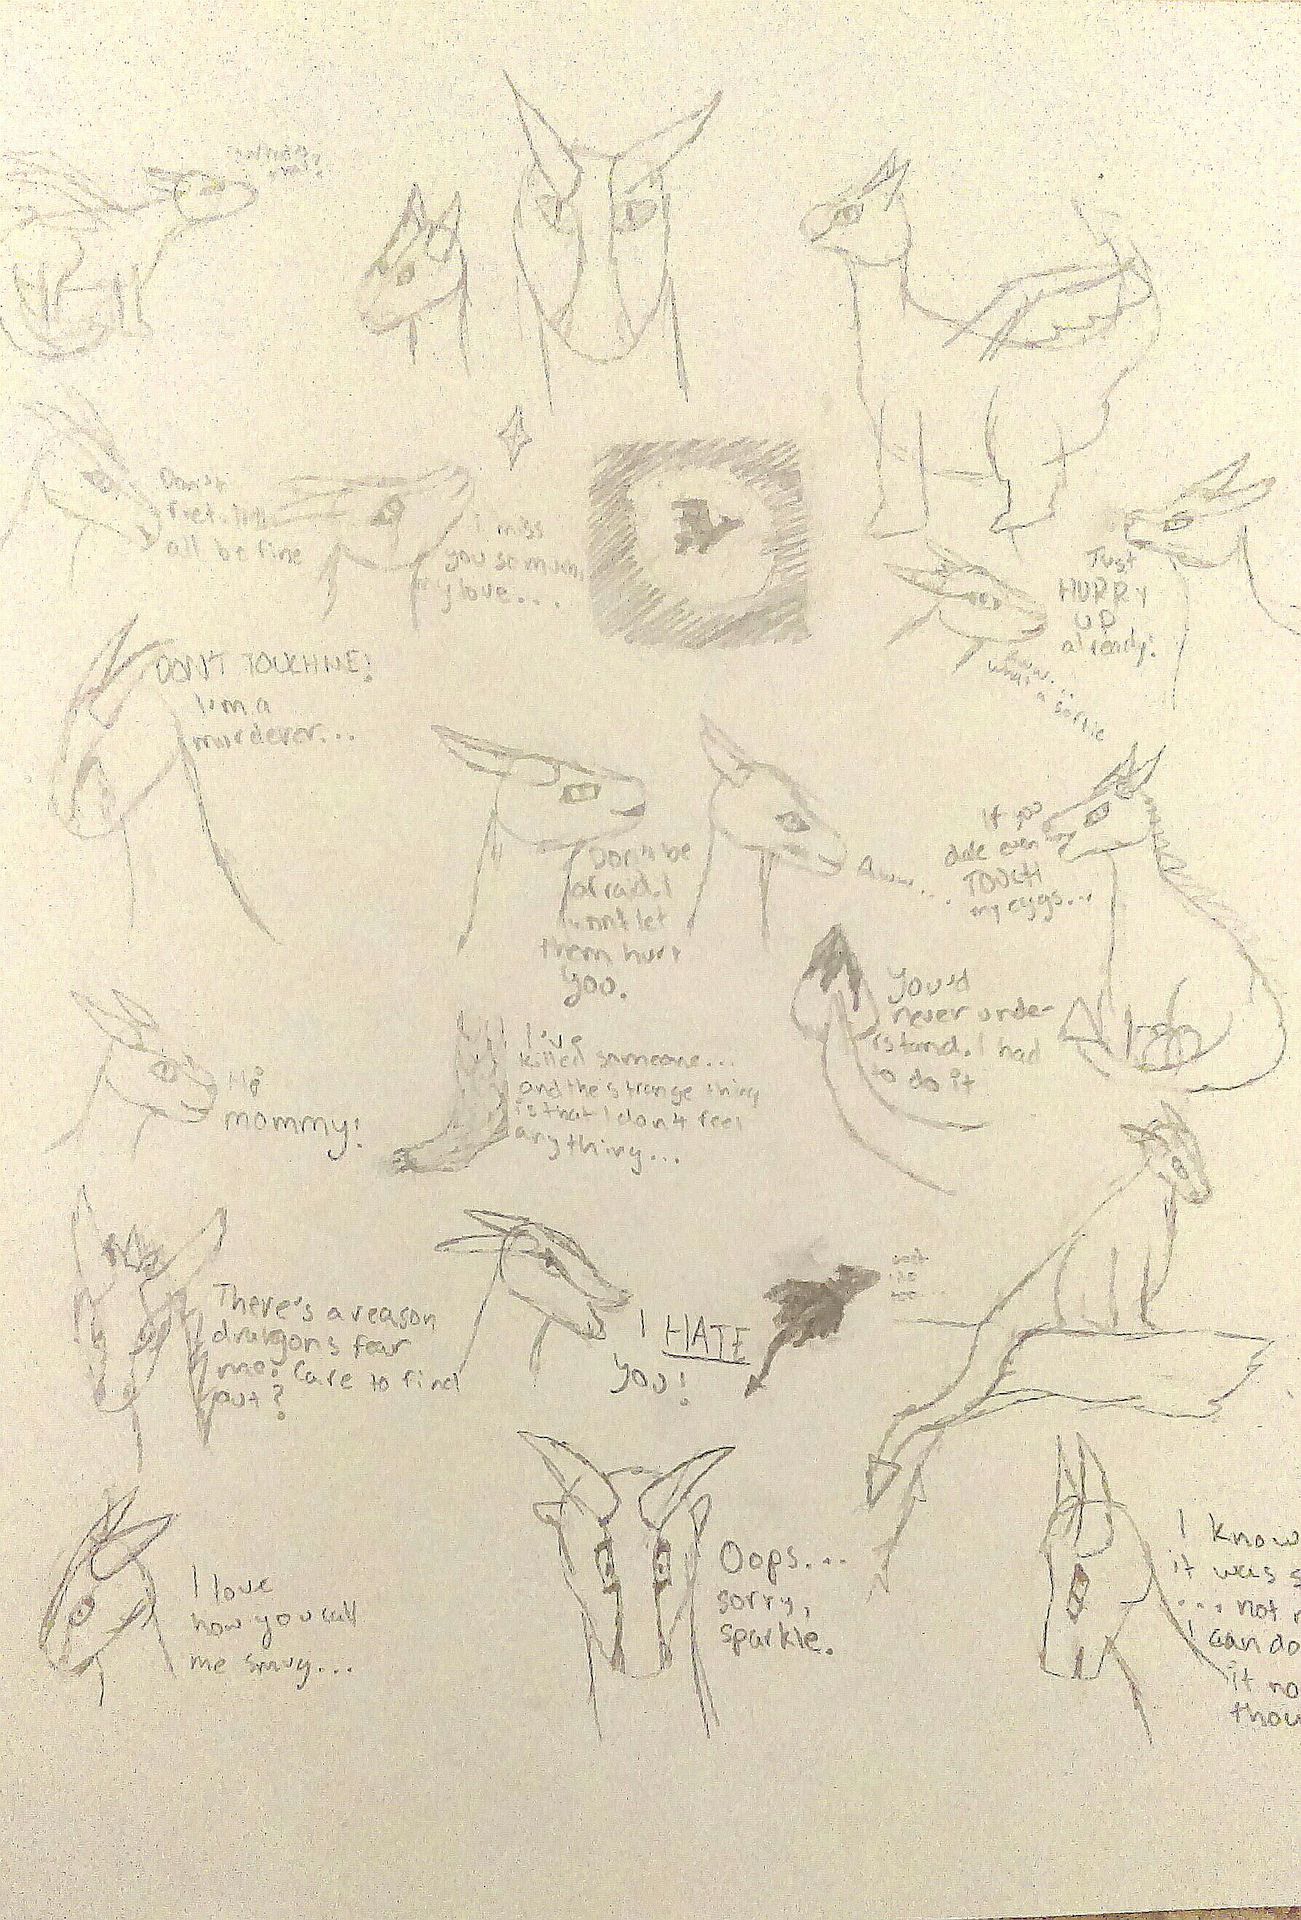 Don't
fret. It'll
all be fine
I miss
you so much,
my love...
Just
HURRY
UP
already!
Aww...
what a
DON'T TOUCH ME!
I'm a
murderer...
Don't be
afraid. I
won't let
them hurt
you.
Aww...
If you
dare even
TOUCH
my eggs...
You'd
never unde-
rstand. I had
to do it
Hi
mommy!
I've
killed someone...
and the strange thing
is that I don't feel
anything...
There's a reason
dragons fear
me. Care to find
out?
I HATE
you!
I love
how you call
me smug...
Oops...
sorry,
sparkle.
I know
it was s
... not
I can do
it no
thou